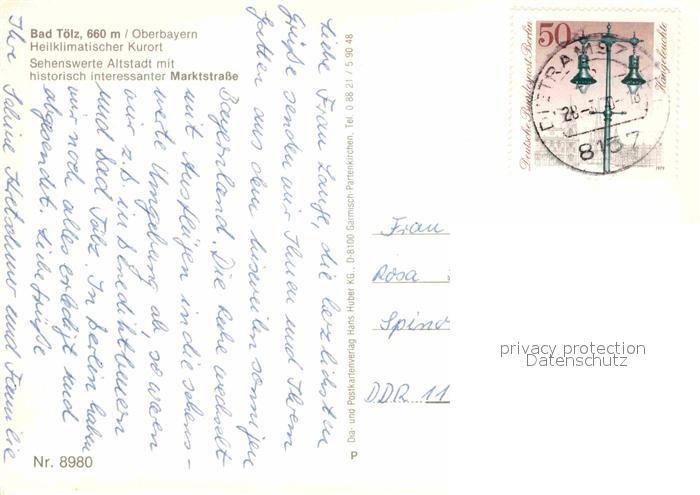 Bad Tölz, 660 m / Oberbayern
Heilklimatischer Kurort
Sehenswerte Altstadt mit
historisch interessanter Marktstraße
Liebe Frau Lange, die herzlichsten
Grüße senden wir Ihnen und Ihrem
Gatten aus dem bisweilen sonnigen
Bayernland. Die Ruhe wechselt
mit Ausflügen in die sehens-
werte Umgebung ab, so waren
wir z.B. in Benediktbeuern
und Bad Tölz. In Berlin haben
wir noch alles erledigt und
abgesendet. Liebe Grüße
Ihre Sabine und Familie
Nr. 8980
Dia- und Postkartenverlag Hans Huber KG., D-8100 Garmisch-Partenkirchen, Tel. 0 88 21 / 5 90 48
P
50
Deutsche Bundespost Berlin
Hängeleuchte
1979
DIETRAMSZ
8157
Frau
Rosa
Spino
DDR 11
privacy protection
Datenschutz